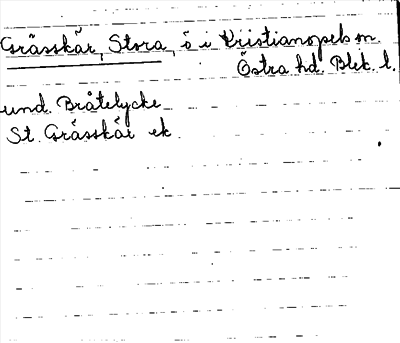 Grässkär, Stora, ö i Kristianopels sn.
Östra hd. Blek. l.
und. Bråtelycke
St. Grässkär ek.